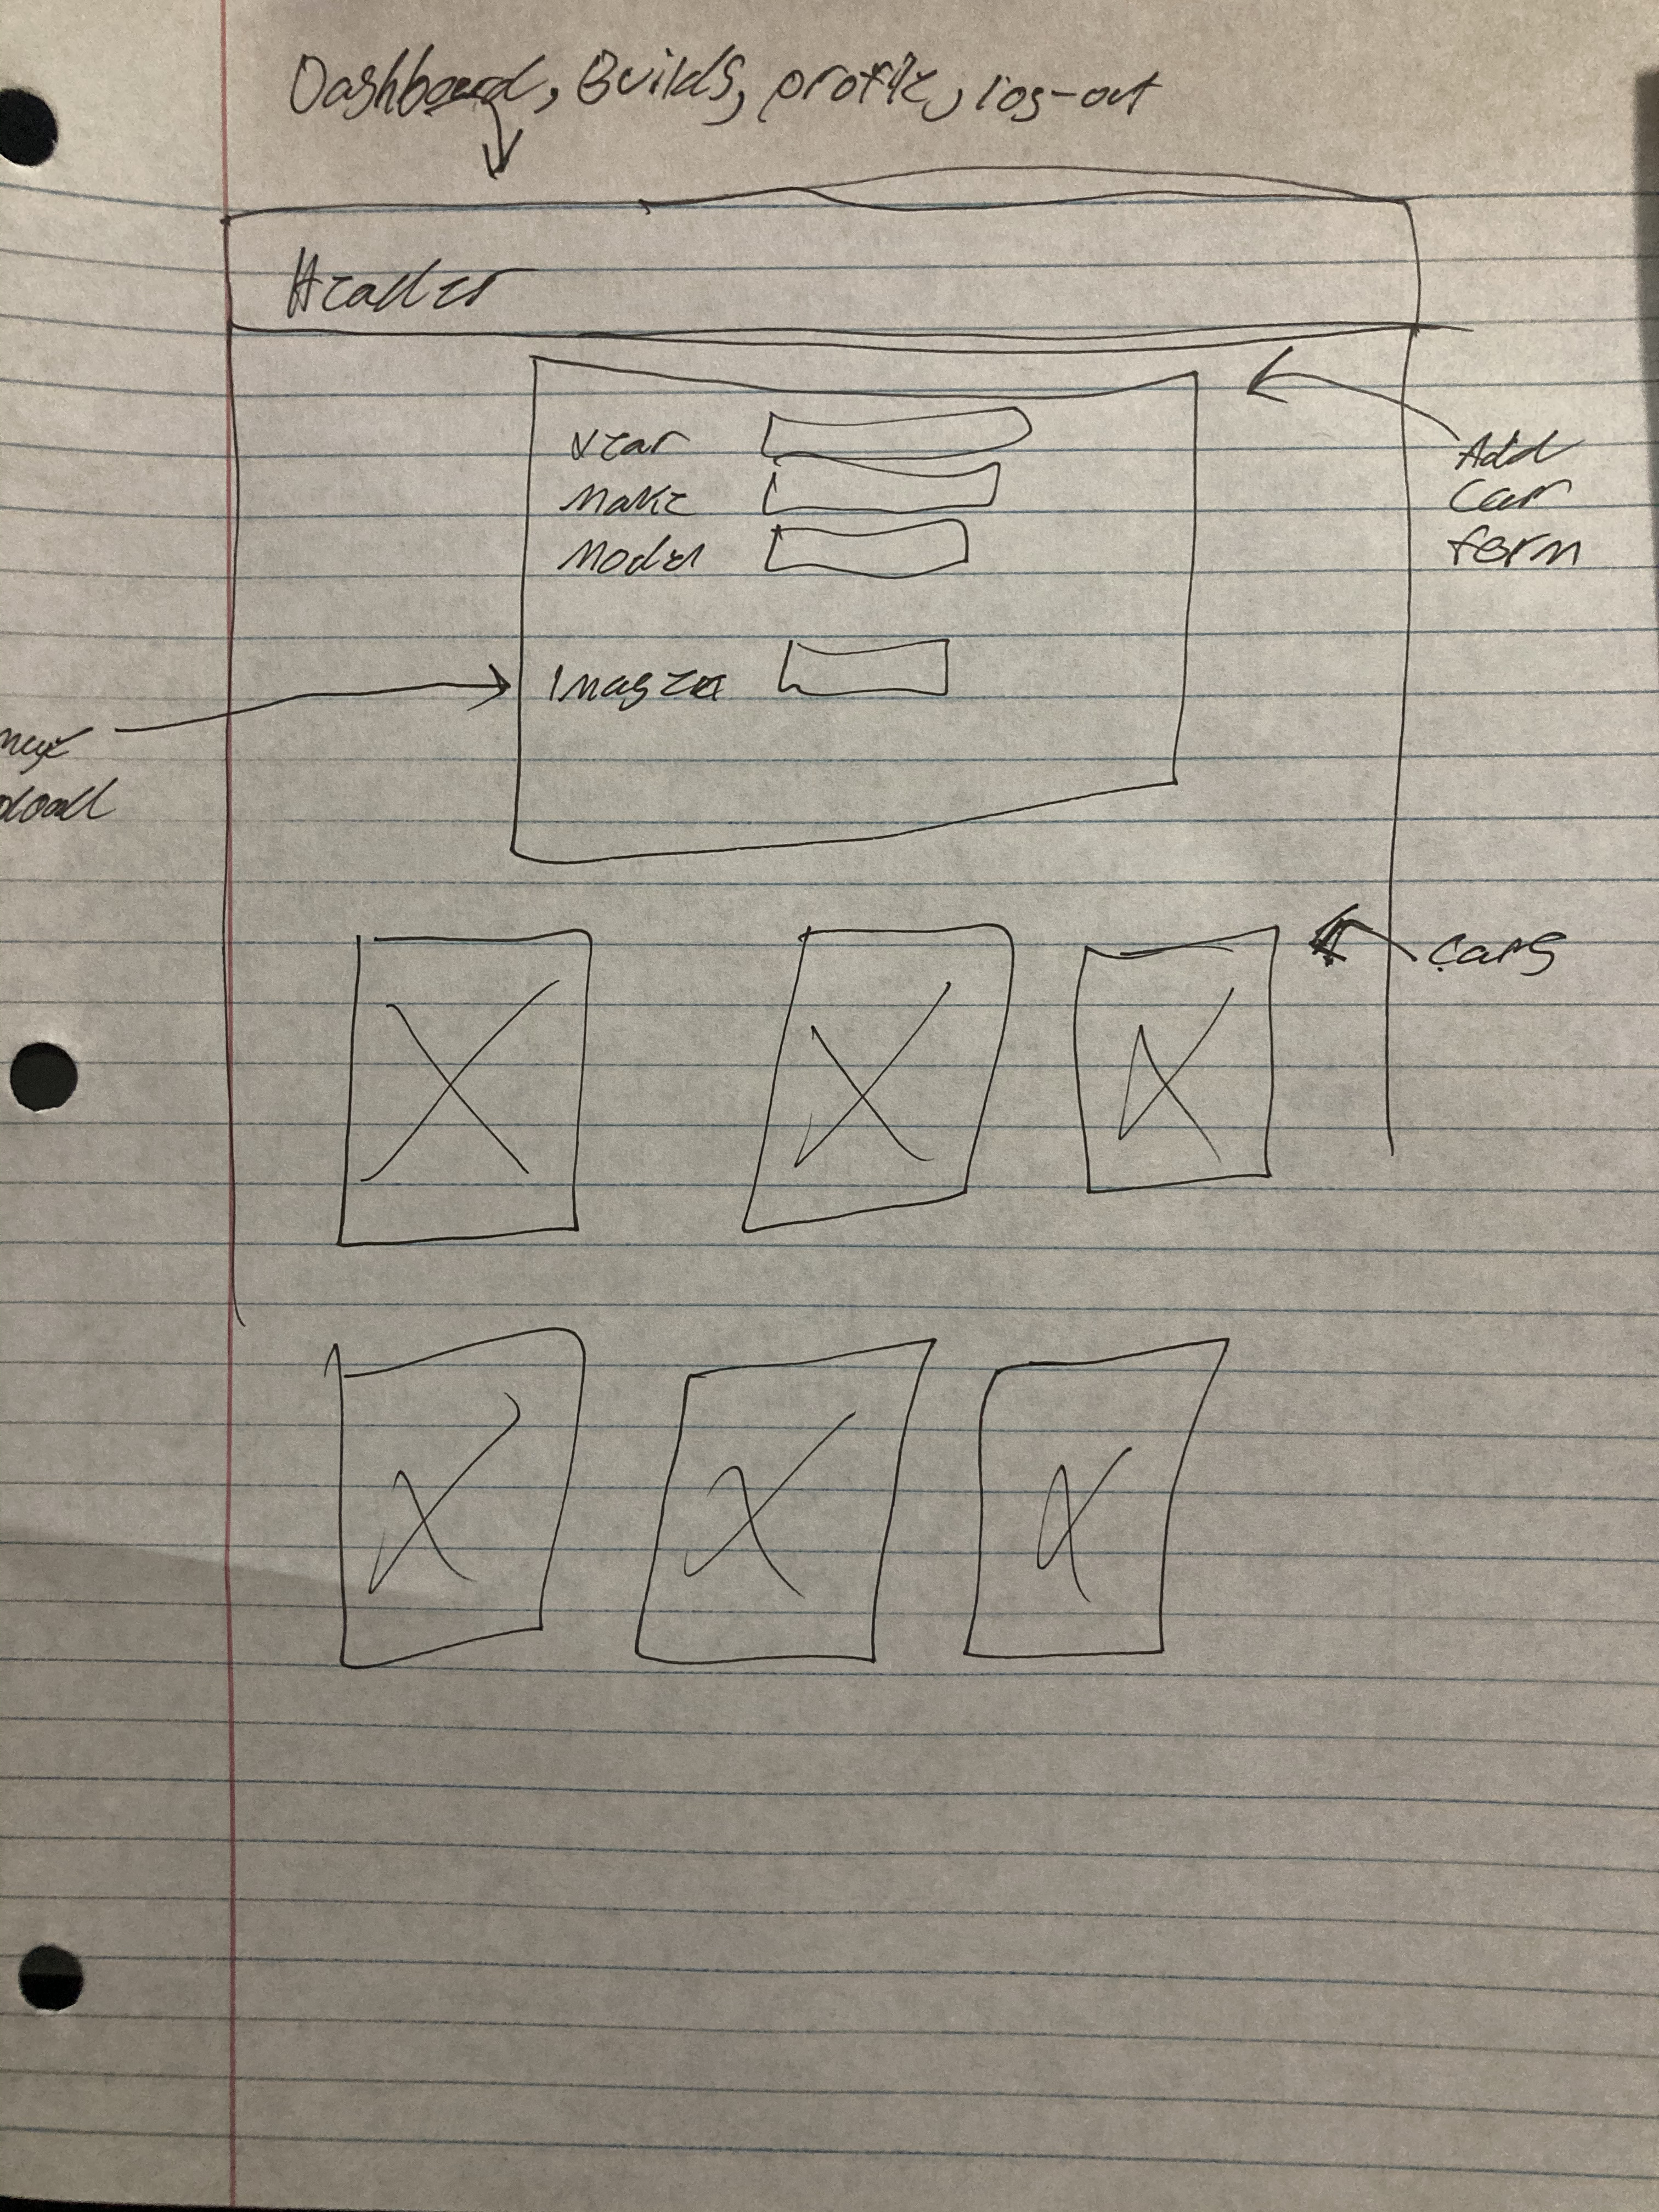 Dashboard, Builds, profile, log-out
Header
Year
Make
Model
Add
Car
form
Image
Cars